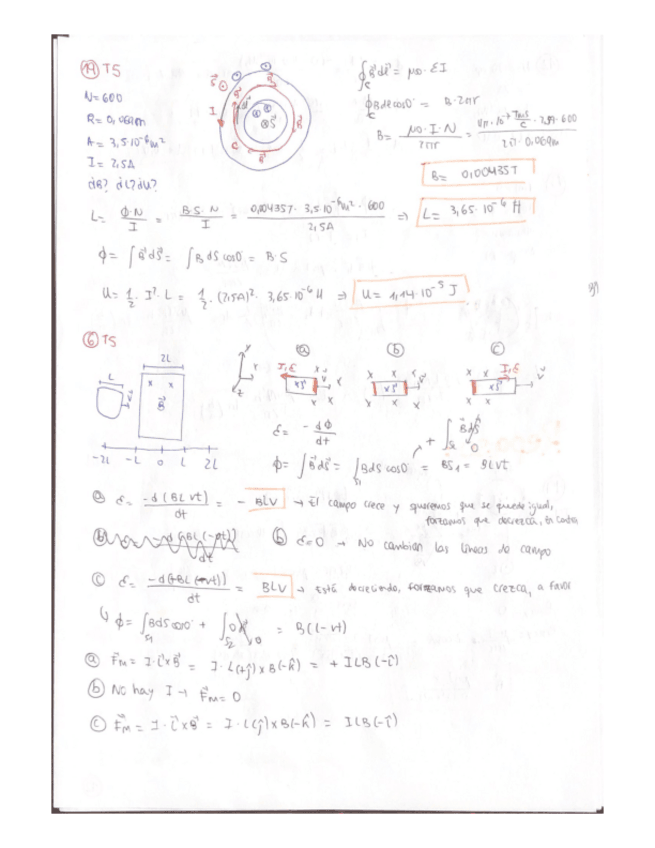 14 T5
N=600
R= 0,069m
A= 3,5·10⁻⁶ m²
I= 2,5A
¿B? ¿L? ¿U?
∮_C B⃗dl⃗ = μ0·ΣI
∮_C Bdlcos0 = B·2πr
B= μ0·I·N / 2πr = 4π·10⁻⁷ · 2,5A·600 / 2π·0,069m
B= 0,00435T
L= Φ·N / I = B·S·N / I = 0,004357·3,5·10⁻⁶m²·600 / 2,5A ⇒ L= 3,65·10⁻⁶ H
Φ= ∫B⃗dS⃗ = ∫BdS cos0 = B·S
U= 1/2·I²·L = 1/2·(2,5A)²·3,65·10⁻⁶H ⇒ U= 1,14·10⁻⁵ J
6 T5
a b c
L 2L
x x
B⃗ v⃗
y x z
I,ε I,ε
-2L -L 0 L 2L
ε= -dΦ/dt
Φ= ∫B⃗dS⃗ = ∫_S1 BdS cos0 + ∫_S2 B⃗dS⃗ 0 = BS1 = BLvt
a ε= -d(BLvt)/dt = - BLV → El campo crece y queremos que se quede igual,
forzamos que decrezca, en contra
b ε=0 → No cambian las líneas de campo
c ε= /dt = BLV → Está decreciendo, forzamos que crezca, a favor
↳ Φ= ∫_S1 BdS cos0 + ∫_S2 0 = B(L-vt)
a F⃗m = I·L⃗×B⃗ = I·L(+ĵ)×B(-k̂) = +ILB(-î)
b No hay I → F⃗m=0
c F⃗m = I·L⃗×B⃗ = I·L(ĵ)×B(-k̂) = ILB(-î)